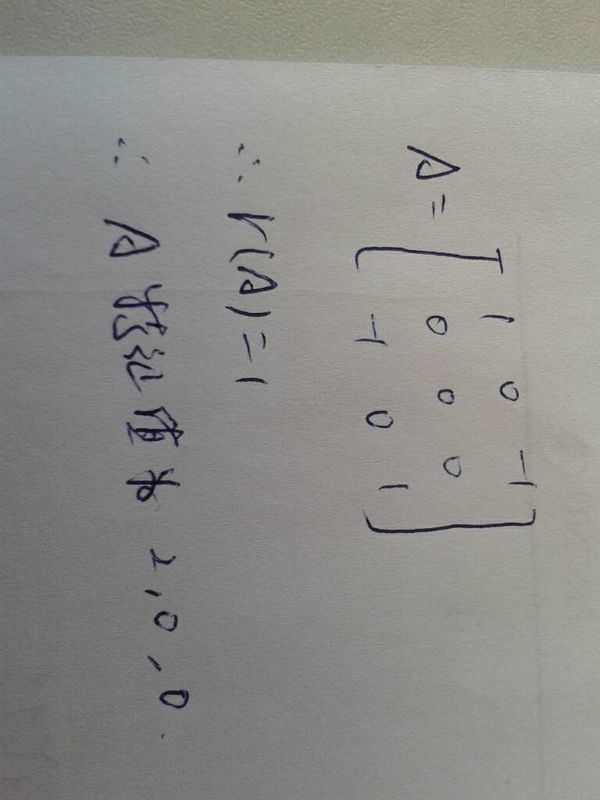 A = [ 1 0 -1
0 0 0
-1 0 1 ]
∴ r(A) = 1
∴ A 特征值为 2, 0, 0.